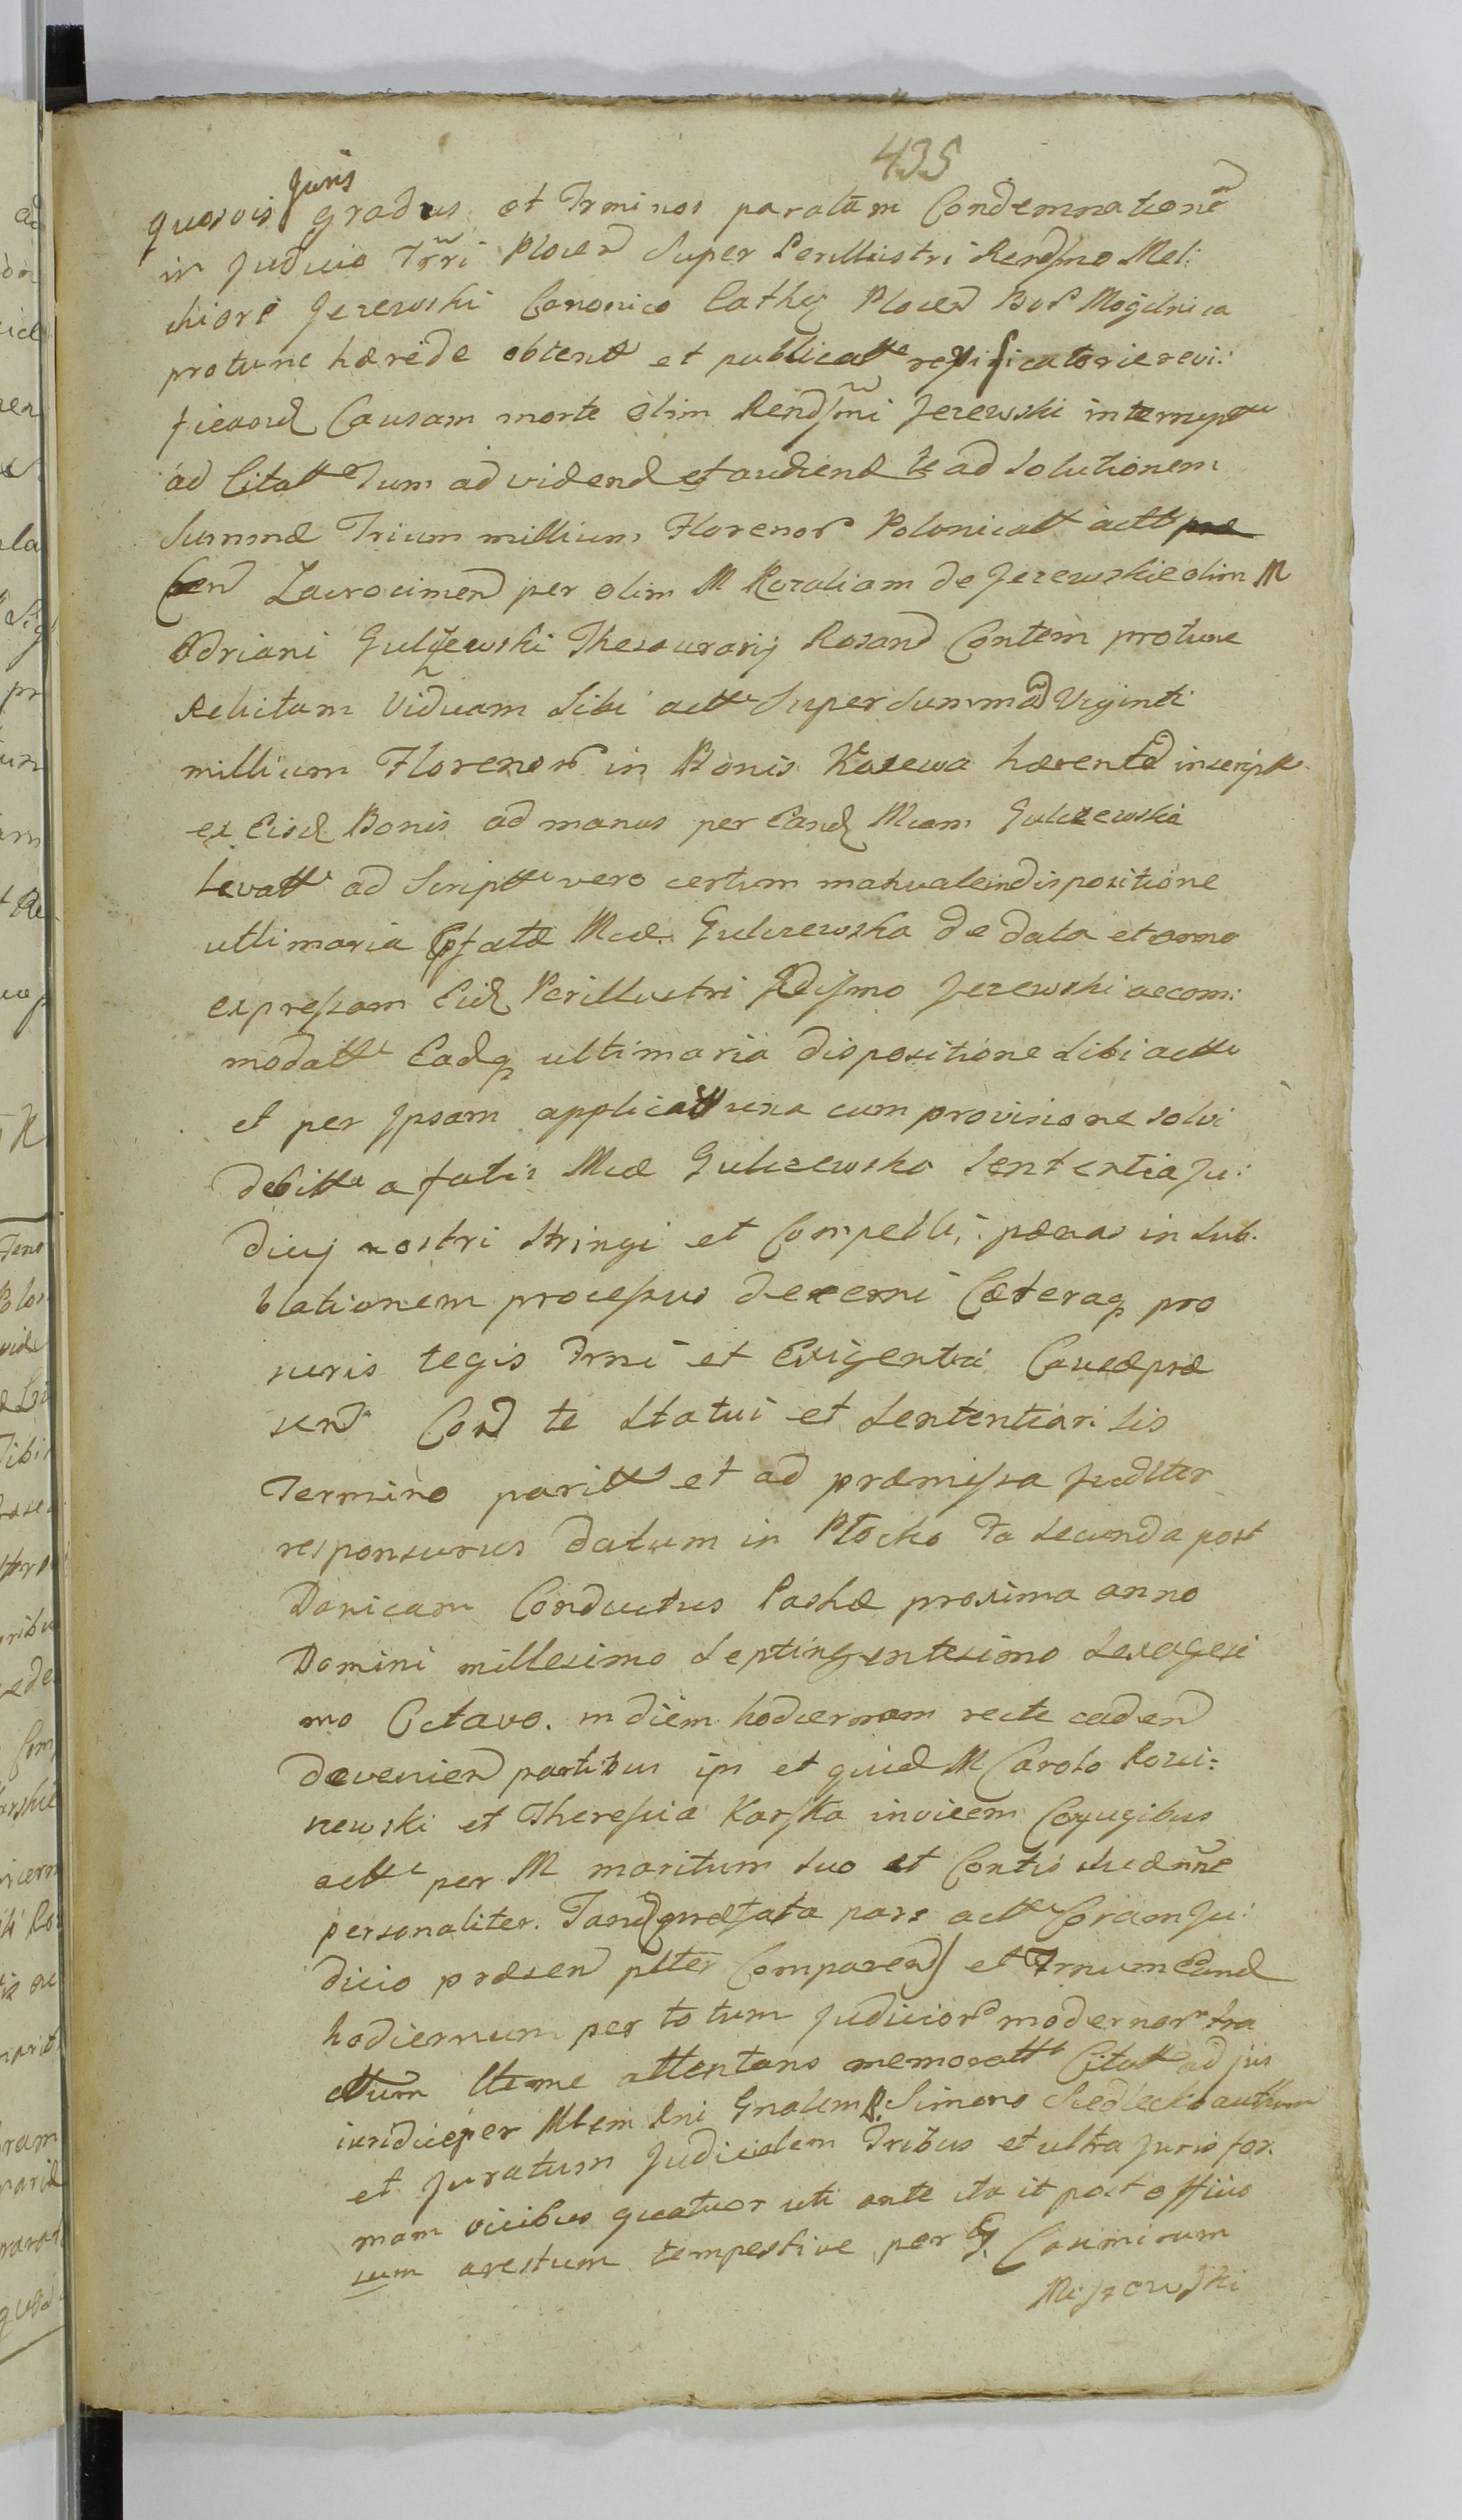 435
quosvis Juris gradus et Trminos paratam Condemnatione
in Judicio Trri Plocen Super Perillustri Rendsmo Mel:
chiore Jezewski Canonico Cathg Plocen Bor Mogilnica
protunc hærede obtent et publicatt
ficand Causam morte olim Rendsmi Jezewski interrupt
ad Citatt Tum ad vidend et audiend te ad Solutionem
Summæ Trium millium Florenor Polonicall actt præ
Cen Zacrocimen per olim M Rozaliam de Jezewskie olim M
Adriani Gulczewski Thesaurarij Rozand Contem protunc
Relictam Viduam Sibi actt Super Summa Viginti
millium Florenor in Bonis Kosewa hærentd inscript
ex Eisd Bonis ad manus per Eand Mcam Gulczewska
Levatt ad Scriptt vero certum manuale in dispositione
ultimaria Pfatæ Mcæ Gulczewska de data et anno
expressam Eid Perillustri Rdissmo Jezewski accom:
modatt Eadq ultimaria dispositione Sibi actt
et per Ipsam applicatt una cum provisione solvi
debitt a fatis Mcæ Gulczewska Sententia Ju:
dicij nostri Stringi et Compelli, pænas in Sub
lationem processus decerni Cæteraq pro
iuris legis Trni et Exigentia Causæ præ
sent Con te Statui et Sententiari Sis
Termino paritt et ad præmissa Judlter
responsurus datum in Płocko Fa Secunda post
Dnicam Conductus Paschæ proxima anno
Domini millesimo Septingentesimo Sexagesi
mo Octavo. in diem hodiernam recte caden
devenien partibus ips et quid M Carolo Rozi:
newski et Theressia Karska invicem Conjugibus
actt per M maritum Suo et Contis Suæ nne
personaliter. Tand præfata pars actt Coram Ju:
dicio præsen plter Comparen et Trnum Eund
hodiernum per totum Judicior modernor tra
ctum lttme attentans memoratt Citatt ad jus
iuridice per Mlem Rni Gnalem P. Simone Siedlecki authum
et Juratum Judicialem Tribus et ultra Juris for.
mam vicibus quatuor uti ante ita it post officio
sum arestum tempestive per G. Casimirum